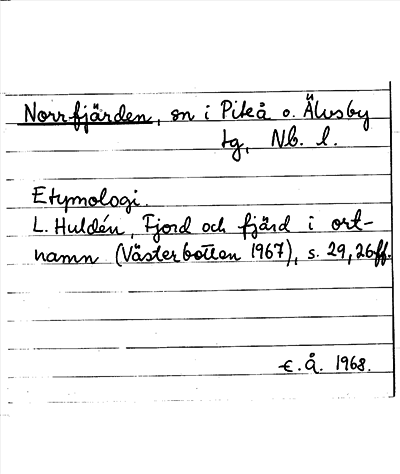 Norrfjärden, sn i Piteå o. Älvsby
tg, Nb. l.
Etymologi.
L. Huldén, Fjord och fjärd i ort-
namn (Västerbotten 1967), s. 29, 26ff.
E.Å. 1968.